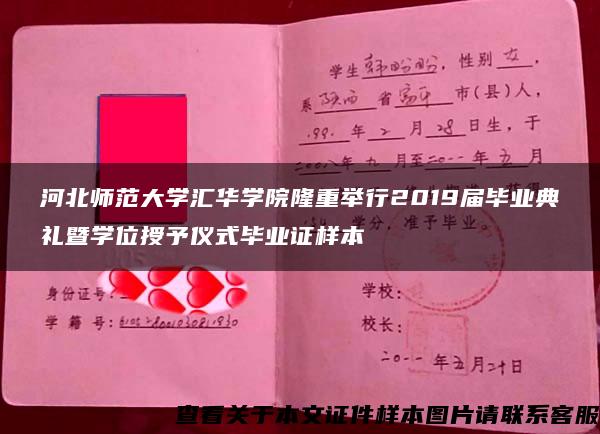 学生韩盼盼，性别女，
系陕西省富平市(县)人，
199 年2月28日生，于
二00八年九月至二0一一年五月
河北师范大学汇华学院隆重举行2019届毕业典
礼暨学位授予仪式毕业证样本
学分，准予毕业。
身份证号：
学 籍 号：
学校：
校长：
二0一一年五月二十日
查看关于本文证件样本图片请联系客服